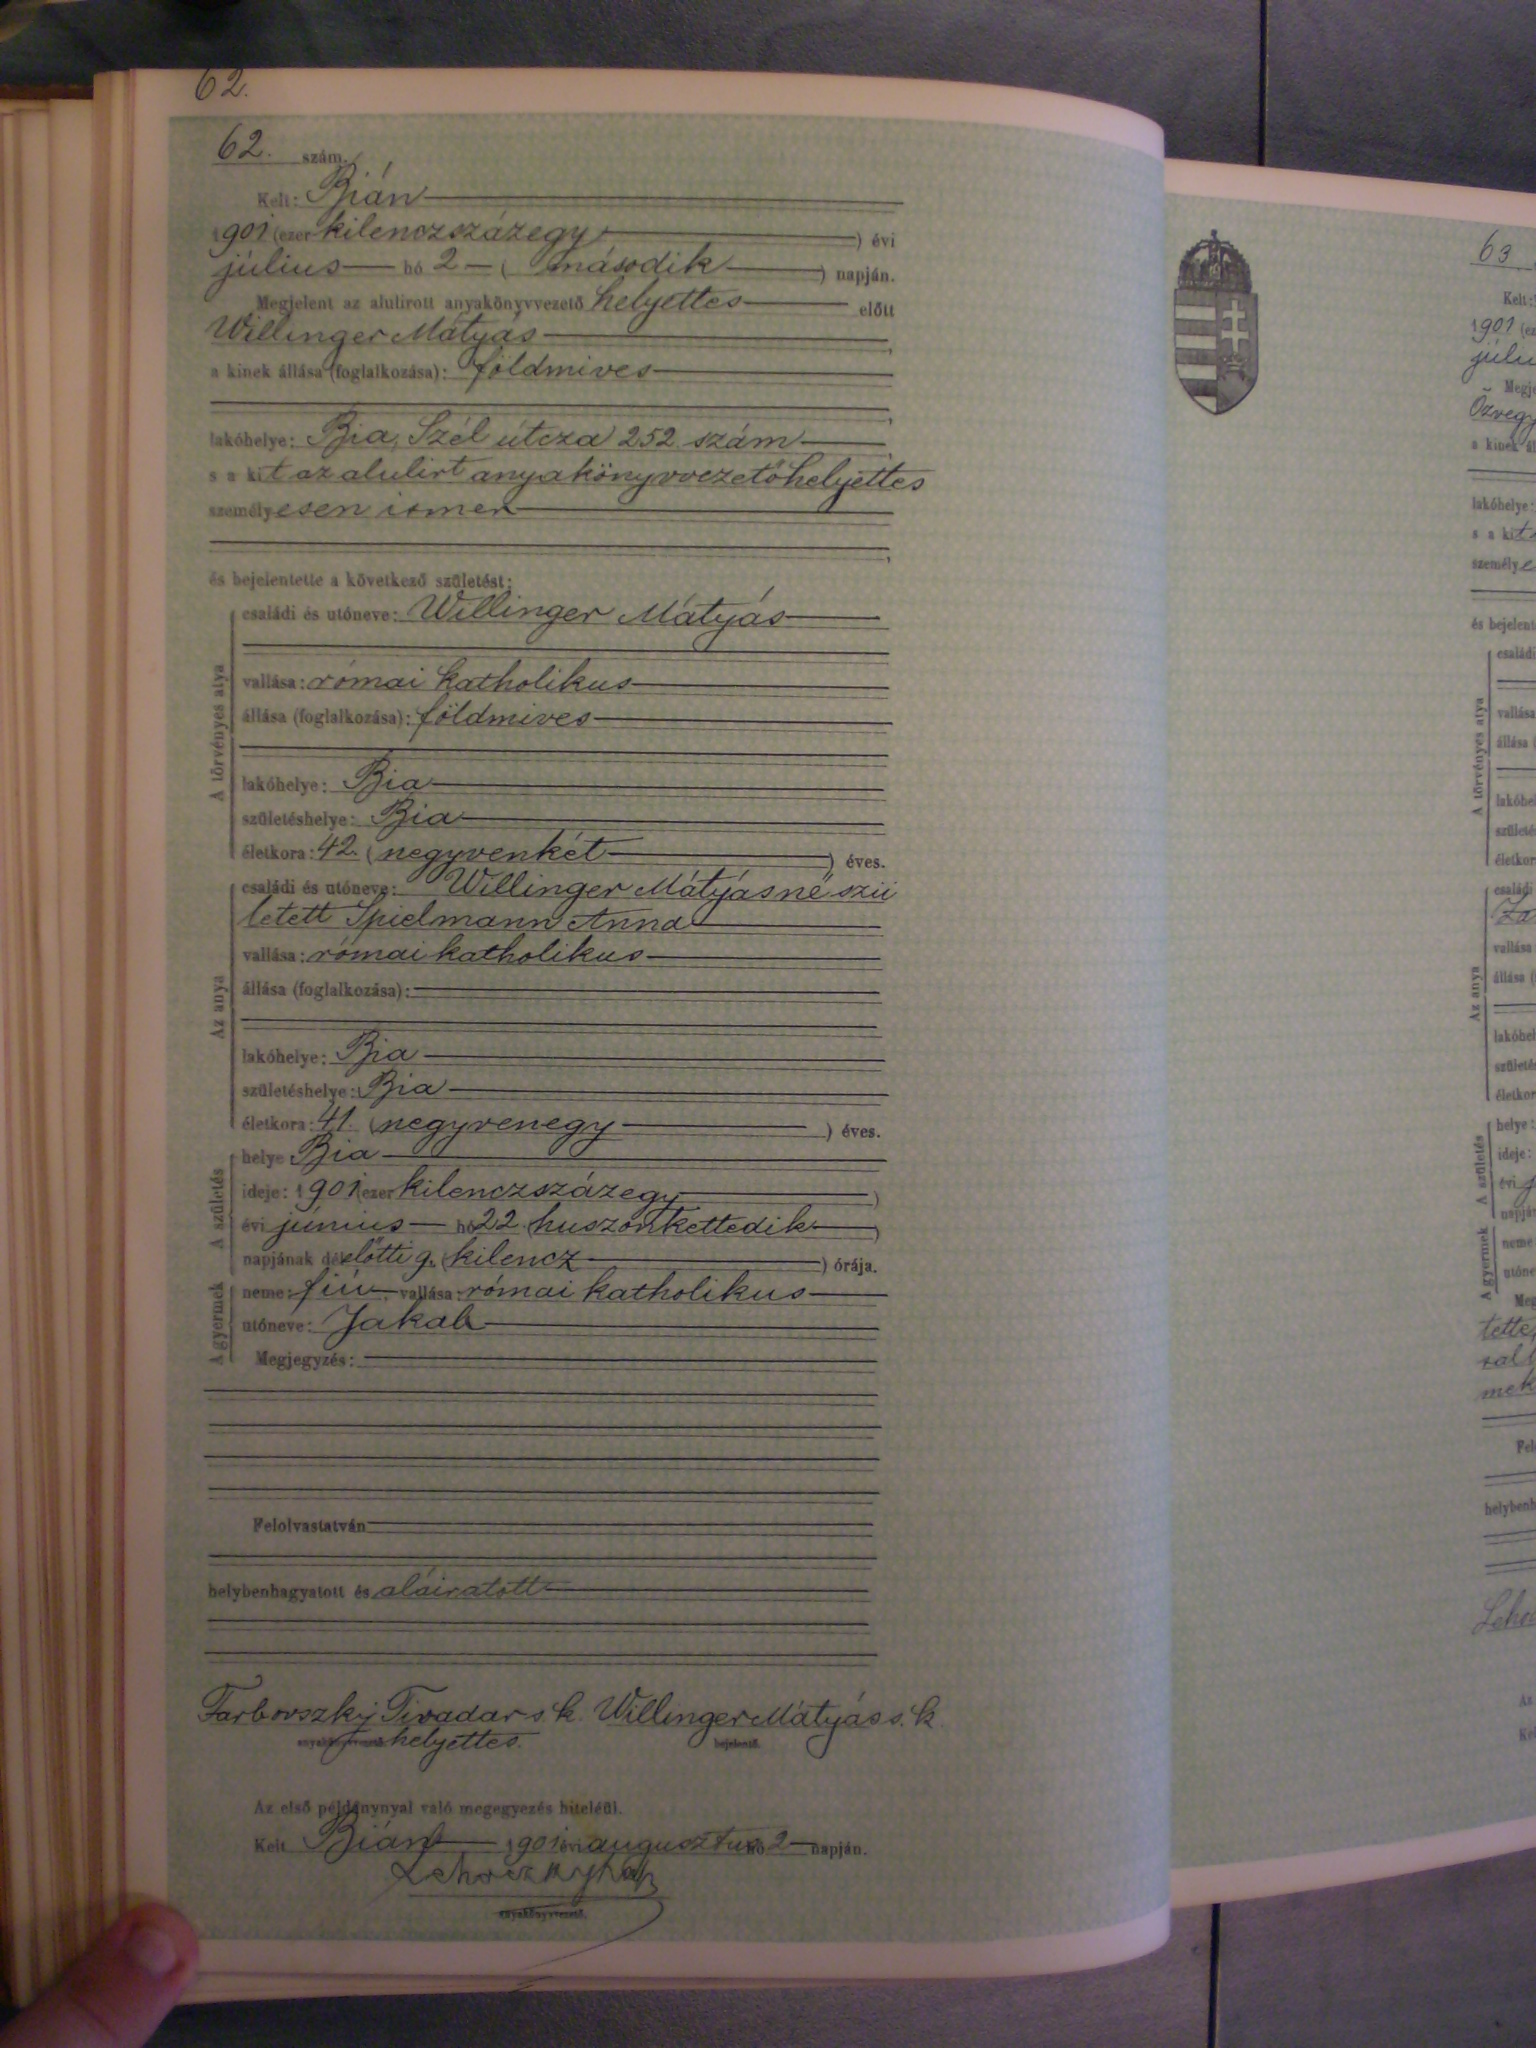 62.
62. szám.
Kelt: Bián
1901 (ezer kilenczszázegy ) évi
július hó 2 ( második ) napján.
Megjelent az alulirott anyakönyvvezető helyettes előtt
Willinger Mátyás
a kinek állása (foglalkozása): földmives
lakóhelye: Bia, Szél útcza 252 szám
s a kit az alulirt anyakönyvvezetőhelyettes
személyesen ismer
és bejelentette a következő születést:
A törvényes atya
családi és utóneve: Willinger Mátyás
vallása: római katholikus
állása (foglalkozása): földmives
lakóhelye: Bia
születéshelye: Bia
életkora: 42. (negyvenkét ) éves.
Az anya
családi és utóneve: Willinger Mátyásné szü
letett Spielmann Anna
vallása: római katholikus
állása (foglalkozása):
lakóhelye: Bia
születéshelye: Bia
életkora: 41. (negyvenegy ) éves.
A születés
helye Bia
ideje: 1901 (ezer kilenczszázegy )
évi június hó 22 (huszonkettedik )
napjának délelőtti 9. (kilencz ) órája.
A gyermek
neme: fiú, vallása: római katholikus
utóneve: Jakab
Megjegyzés:
Felolvastatván
helybenhagyatott és aláiratott
Farbovszky Tivadar s k. Willinger Mátyás s. k.
anyakönyvvezető helyettes. bejelentő.
Az első példánynyal való megegyezés hiteléül.
Kelt Bián 1901 évi augusztus hó 2 napján.
anyakönyvvezető.
63
Kelt:
1901 (ez
júliu
Megje
Özvegy
a kinek ál
lakóhelye:
s a kit a
személye
és bejelent
A törvényes atya
családi
vallása
állása (
lakóhel
születés
életkor
Az anya
családi
Za
vallása
állása (
lakóhel
születés
életkor
A születés
helye:
ideje:
évi j
napján
A gyermek
neme
utóne
Meg
tette,
mek
Fel
helybenh
Leho
Az
Kel